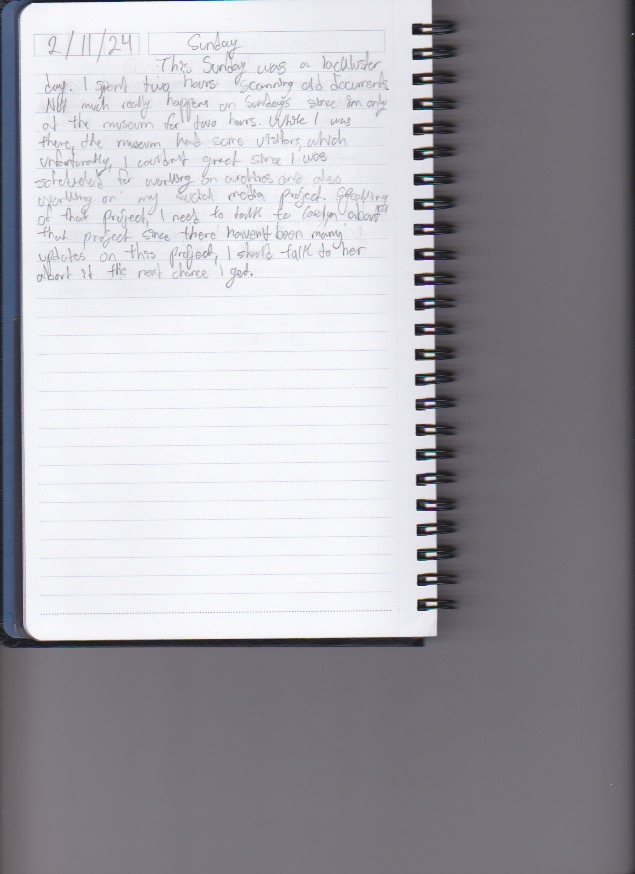 2/11/24 Sunday
This Sunday was a lackluster
day. I spent two hours scanning old documents
Not much really happens on Sundays since I'm only
at the museum for two hours. While I was
there, the museum had some visitors, which
unfortunatly, I couldn't greet since I was
scheduled for working on archives and also
working on my social media project. Speaking
of that project, I need to talk to Carolyn about
that project since there haven't been many
updates on this project, I should talk to her
about it the next chance I get.